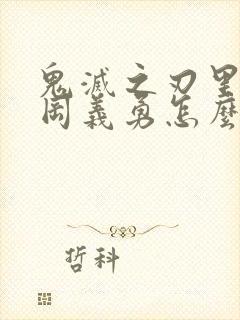 鬼滅之刃里
岡義勇怎麼
哲科